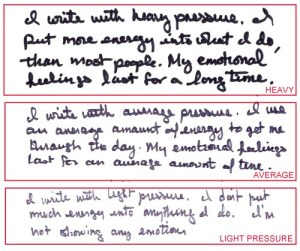 I write with heavy pressure. I
put more energy into what I do,
than most people. My emotional
feelings last for a long time.
HEAVY
I write with average pressure. I use
an average amount of energy to get me
through the day. My emotional feelings
last for an average amount of time.
AVERAGE
I write with light pressure. I don't put
much energy into anything I do. I'm
not showing any emotion
LIGHT PRESSURE